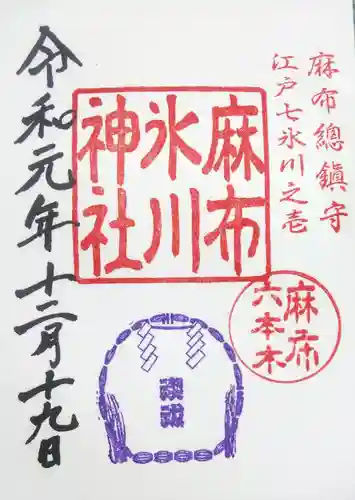 麻布總鎭守
江戸七氷川之壱
麻布
氷川
神社
麻布
六本木
令和元年十二月十九日